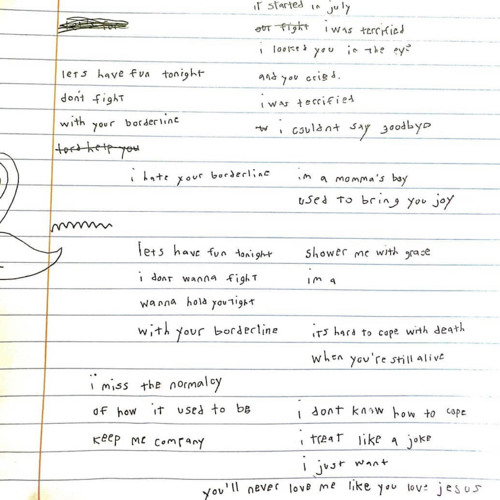 lets have fun tonight
dont fight
with your borderline
lord help you
i hate your borderline
lets have fun tonight
i dont wanna fight
wanna hold you tight
with your borderline
i miss the normalcy
of how it used to be
keep me company
it started in july
our fight i was terrified
i looked you in the eye
and you cried.
i was terrified
i couldnt say goodbye
im a momma's boy
used to bring you joy
shower me with grace
im a
its hard to cope with death
when you're still alive
i dont know how to cope
i treat like a joke
i just want
you'll never love me like you love jesus